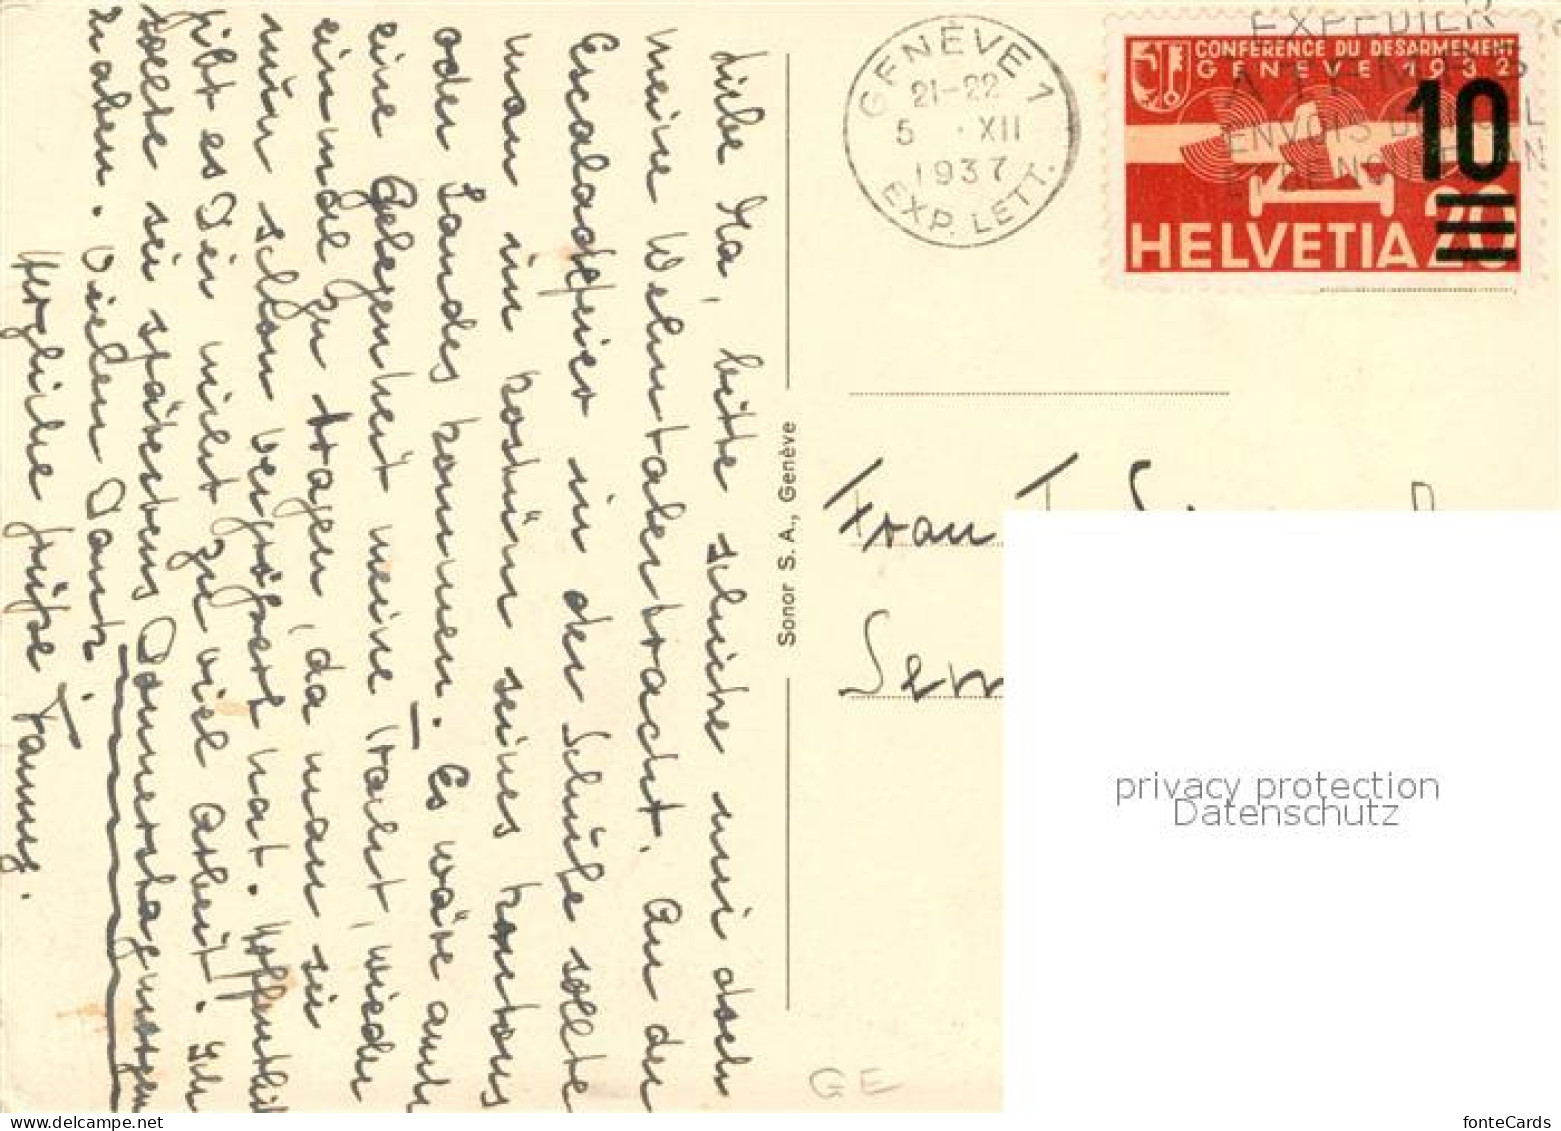 Liebe Ma, bitte schicke mir doch
meine Wehntalertracht. An der
Escaladefeier in der Schule sollte
man im Kostüm seines Kantons
oder Landes kommen. Es wäre auch
eine Gelegenheit meine Tracht, wieder
einmal zu tragen, da man sie
mir schon vergrößert hat. Hoffentlich
gibt es Dir nicht zu viel Arbeit. Ich
sollte sie spätestens Donnerstagmorgen
haben. Vielen Dank.
Herzliche Grüße Fanny.
Sonor S. A., Genève
GENÈVE 1
21-22
5 . XII
1937
EXP. LETT.
EXPEDIER
A TEMPS
CONFERENCE DU DESARMEMENT
GENEVE 1932
10
HELVETIA 20
Frau
GE
privacy protection
Datenschutz
fonteCards